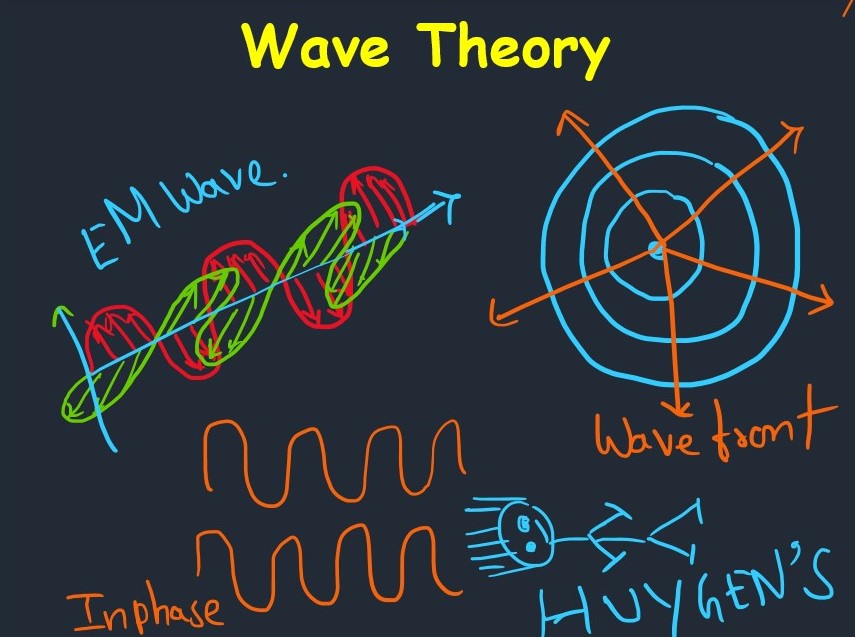 Wave Theory
EM Wave.
Wave front
Inphase
HUYGEN'S